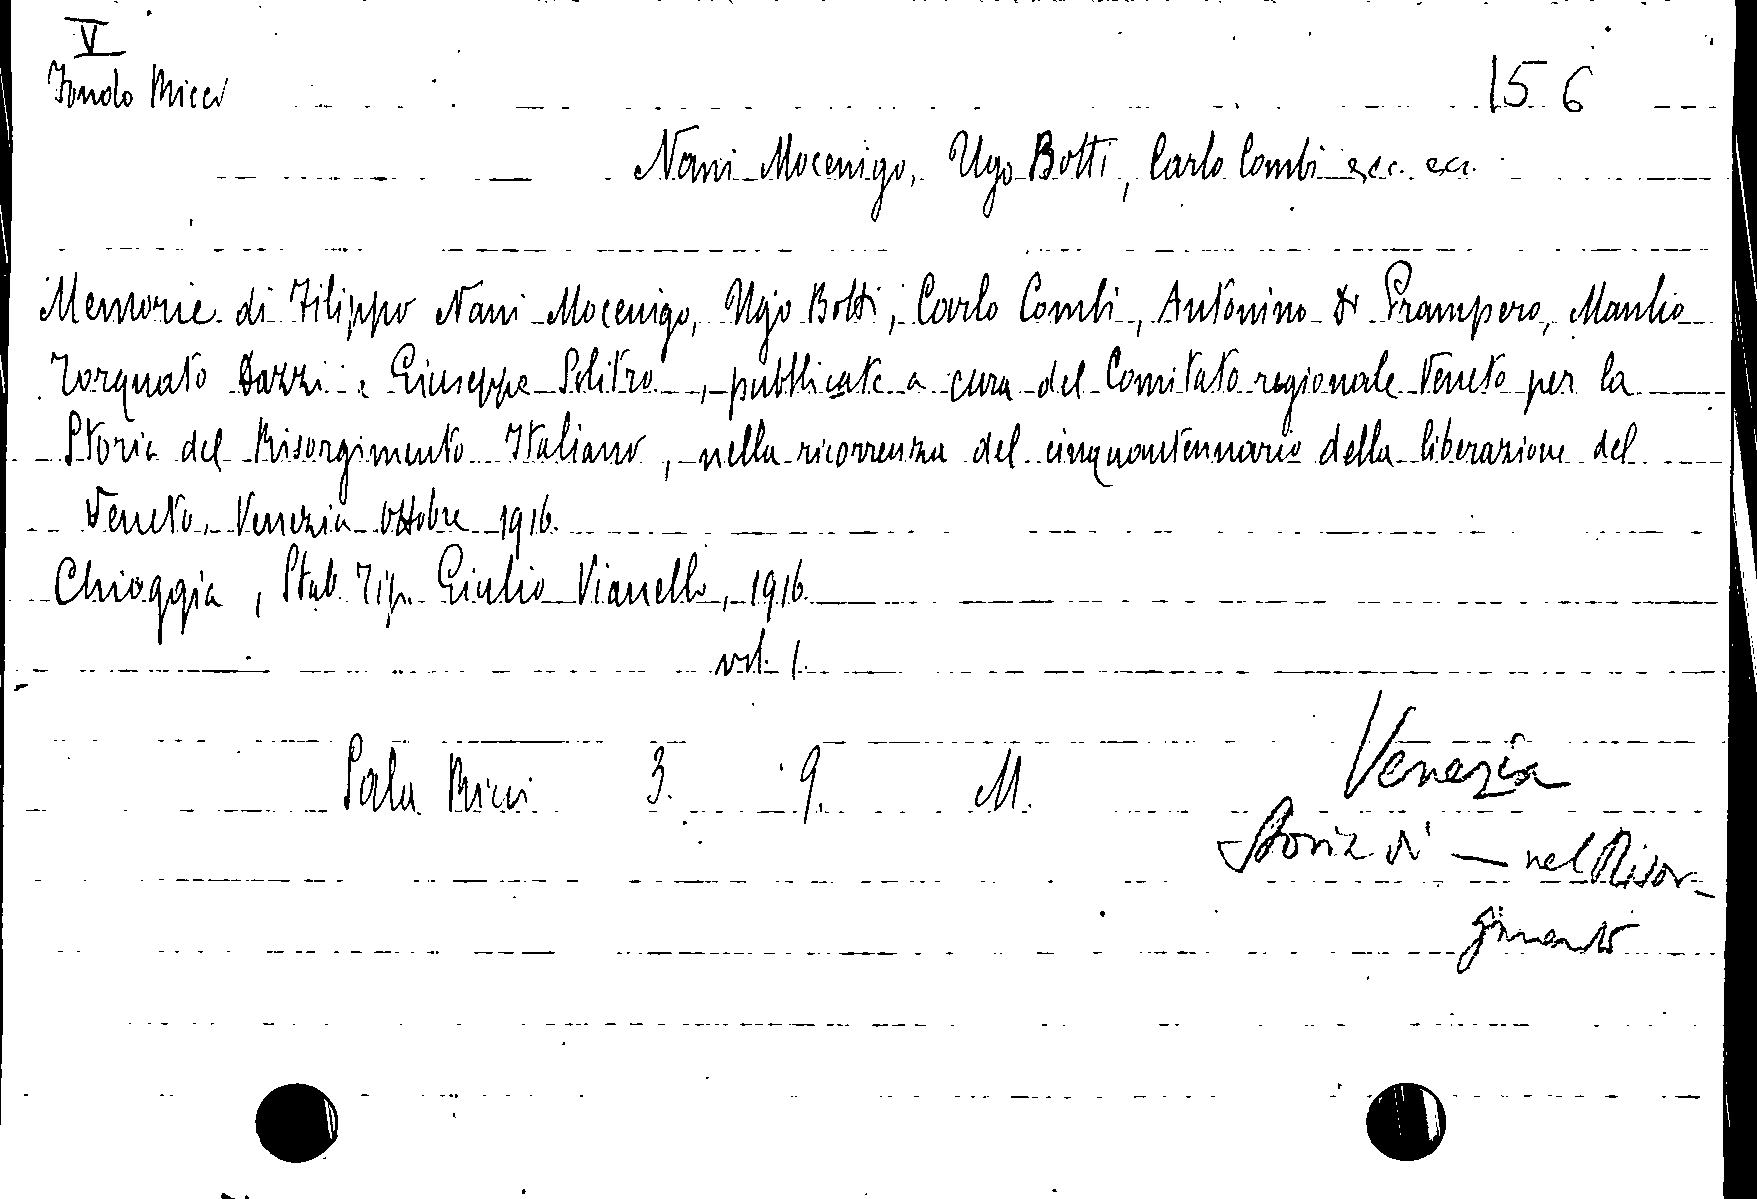 V
Fondo Ricci
156
Nani Mocenigo, Ugo Botti, Carlo Combi ecc. ecc.
Memorie di Filippo Nani Mocenigo, Ugo Botti, Carlo Combi, Antonino Di Prampero, Manlio
Torquato Dazzi e Giuseppe Solitro, pubblicate a cura del Comitato regionale Veneto per la
Storia del Risorgimento Italiano, nella ricorrenza del cinquantennario della liberazione del
Veneto, Venezia Ottobre 1916.
Chioggia, Stab. Tip. Giulio Vianello, 1916.
vol. 1.
Sala Ricci 3. 9. M.
Venezia
Storia di — nel Risor-
gimento